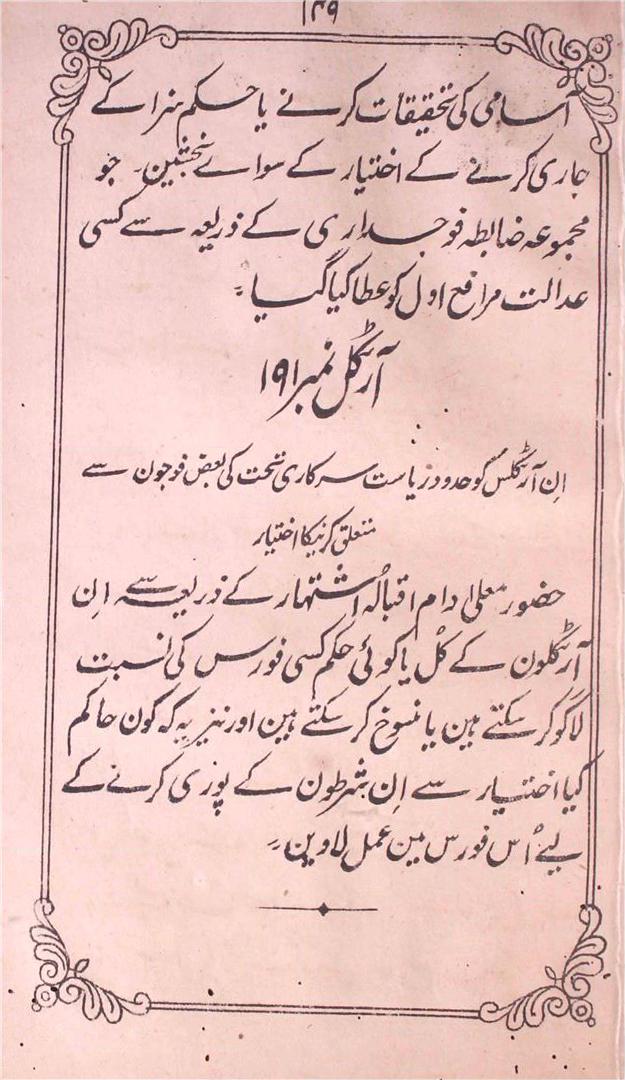 ۱۴۹
آسامی کی تحقیقات کرنے یا حکم سزا کے
جاری کرنے کے اختیار کے سواے نجشین۔ جو
مجموعہ ضابطہ فوجداری کے ذریعہ سے کسی
عدالت مرافع اول کو عطا کیا گیا ہے
آرٹکل نمبر ۱۹۱
اِن آرٹکلس کو حدود ریاست سرکاری تحت کی بعض فوجون سے
متعلق کرنیکا اختیار
حضور معلی ادام اقبالہُ اشتہار کے ذریعہ سے اِن
آرٹکلون کے کُل یا کوئی حکم کسی فورس کی نسبت
لاگو کر سکتے ہین یا منسوخ کر سکتے ہین اور نیز یہ کہ کون حاکم
کیا اختیار سے اِن شرطون کے پوری کرنے کے
لیے اُس فورس مین عمل لاوین۔